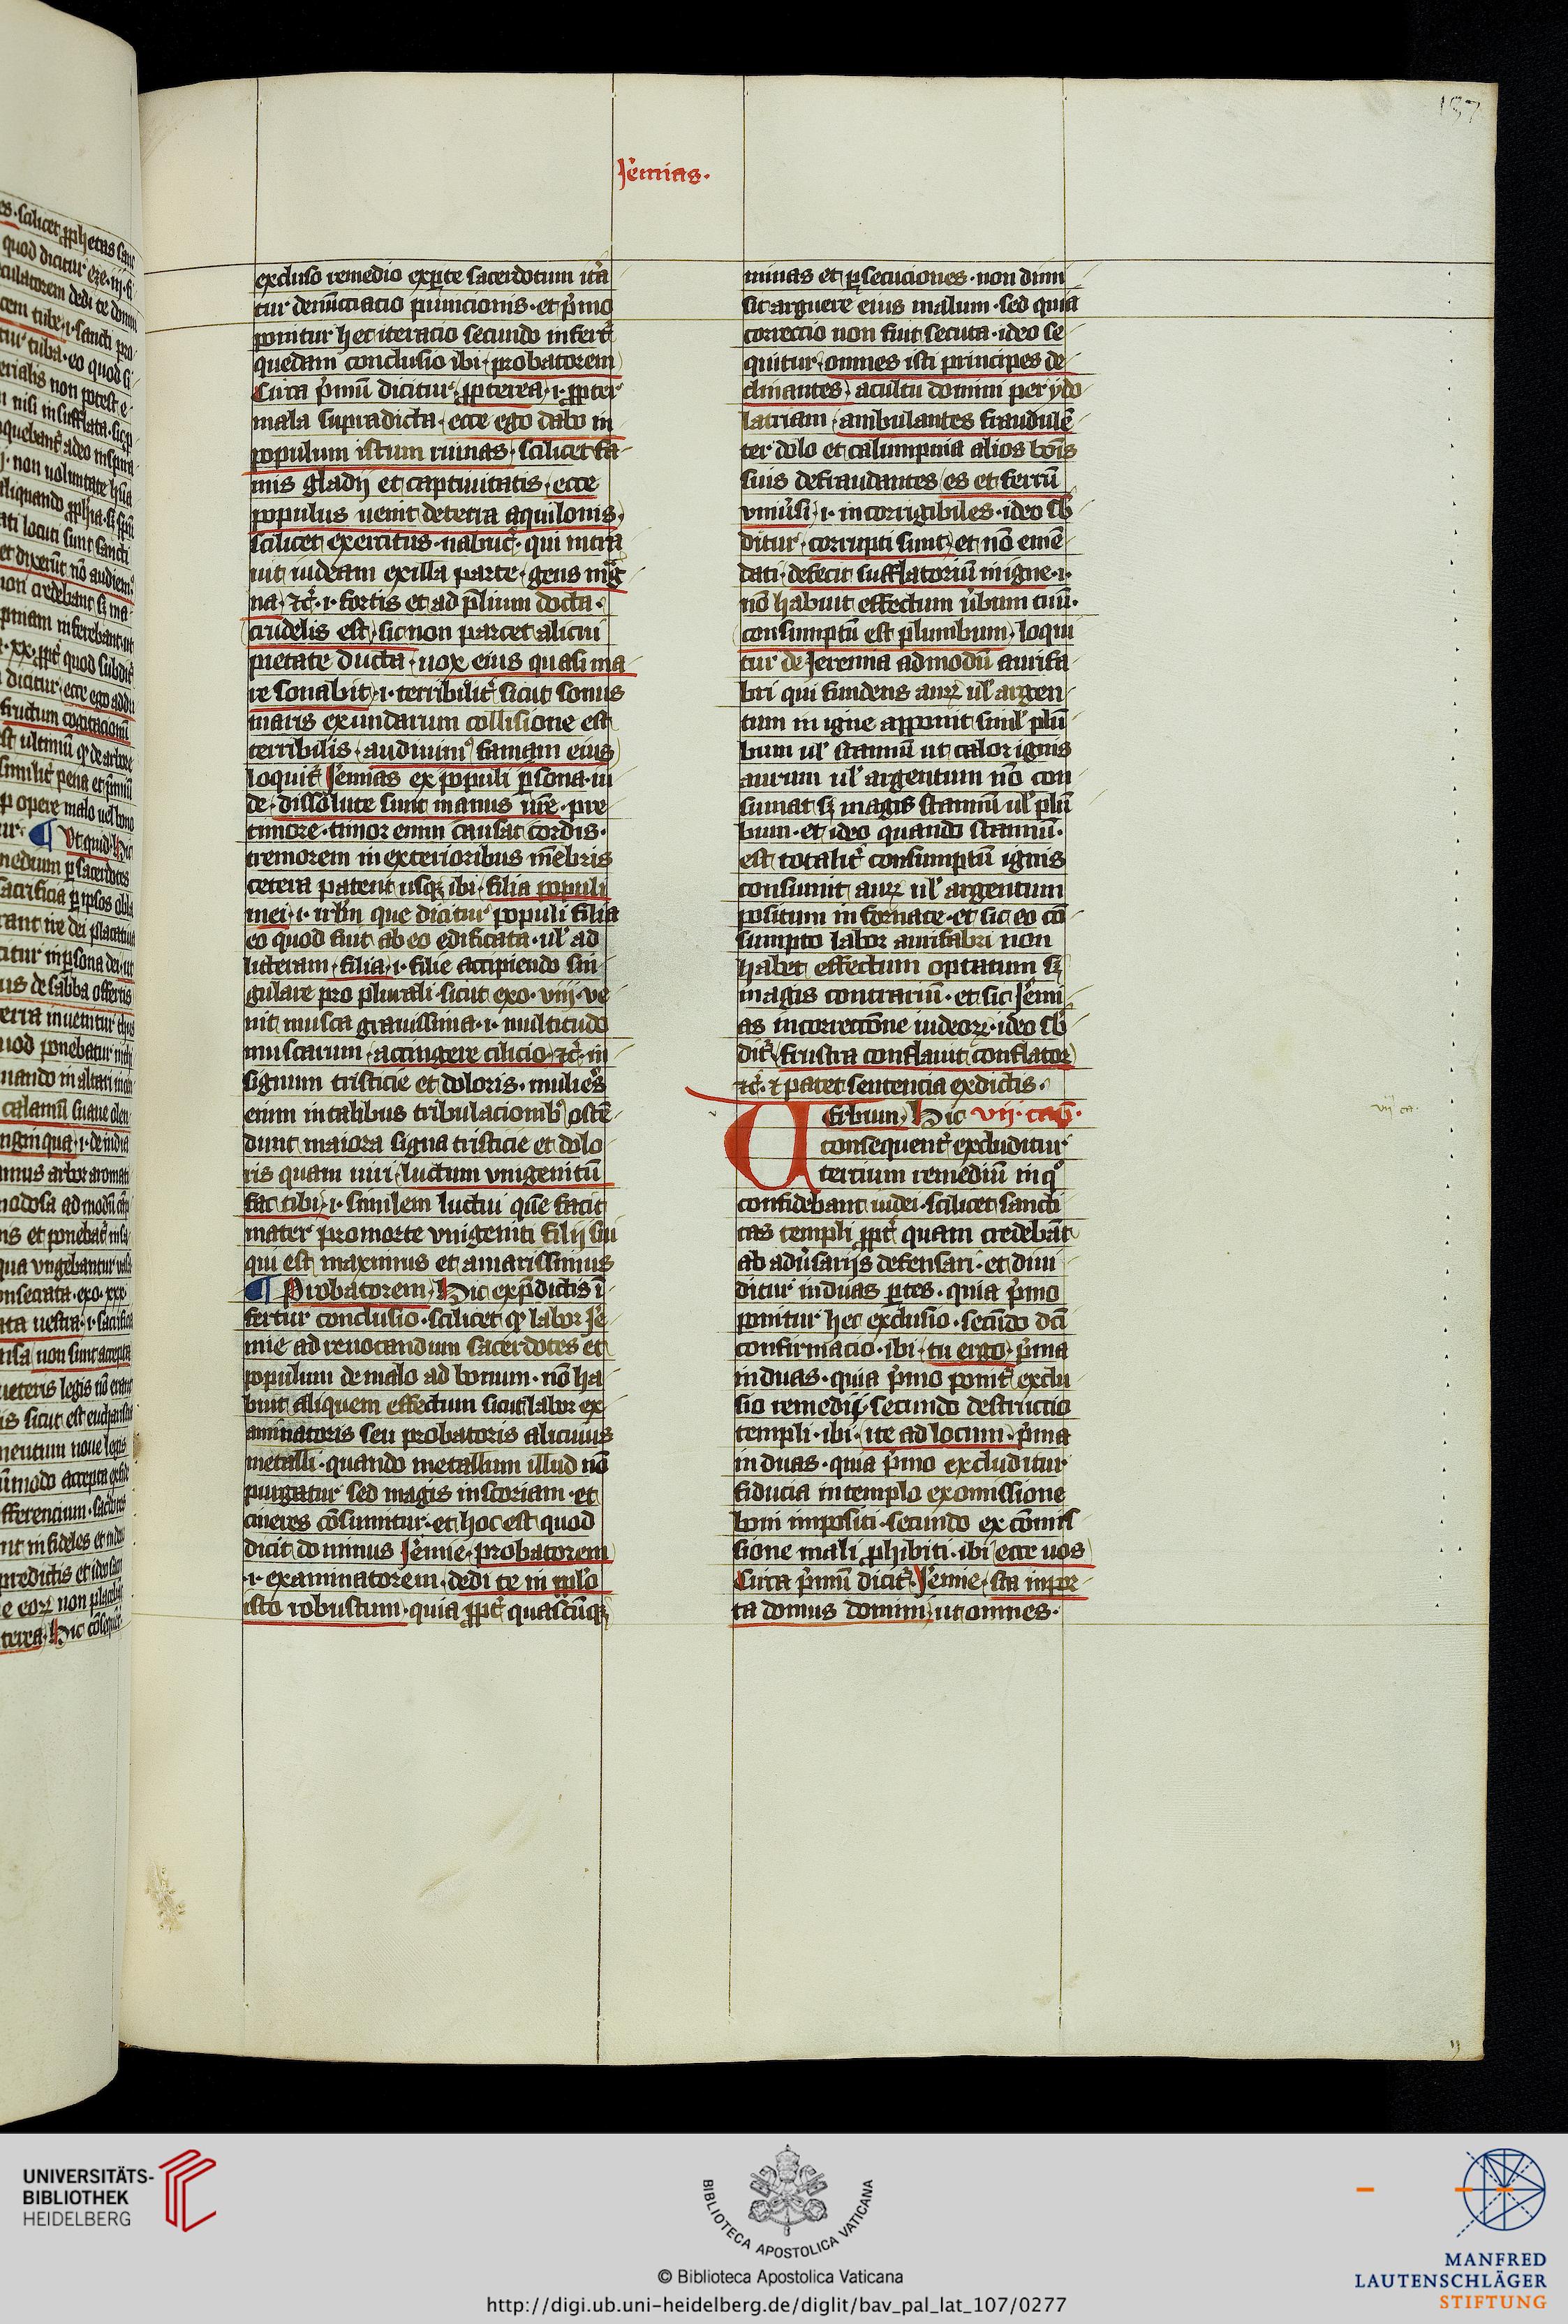 157
Jeremias.
excluso remedio exparte sacerdotum itera
tur denunciacio punicionis · et primo
ponitur hec iteracio secundo infertur
quedam conclusio ibi · probatorem
Circa primum dicitur · propterea · i · propter
mala supradicta · ecce ego dabo in
populum istum ruinas · scilicet fa
mis gladij et captiuitatis · ecce
populus uenit deterra aquilonis ·
scilicet exercitus · nabuc̄ · qui intra
uit iudeam exilla parte · gens mag
na · ⁊c̄ · i · fortis et ad prelium docta ·
crudelis est · sic non parcet alicui
pietate ducta · uox eius quasi ma
re sonabit · i · terribiliter sicut sonus
maris exundarum collisione est
terribilis · audiuimus famam eius
loquitur Jeremias ex populi persona · un
de · dissolute sunt manus nostre · pre
timore · timor enim causat cordis ·
tremorem in exterioribus membris
cetera patent usque ibi · filia populi
mei · i · urbem que dicitur populi filia
eo quod fuit ab eo edificata · uel ad
litteram · filia · i · filie accipiendo sin
gulare pro plurali · sicut exo · viij · ve
nit musca grauissima · i · multitudo
muscarum · accingere cilicio · ⁊c̄ · in
signum tristicie et doloris · mulieres
enim in talibus tribulacionibus osten
dunt maiora signa tristicie et dolo
ris quam uiri · luctum vnigenitum
fac tibi · i · similem luctui quem facit
mater promorte vnigeniti filij sui
qui est maximus et amarissimus
¶ Probatorem · Hic expredictis in
fertur conclusio · scilicet quod labor Jere
mie ad reuocandum sacerdotes et
populum de malo ad bonum · non ha
buit aliquem effectum sicut labor ex
aminatoris seu probatoris alicuius
metalli · quando metallum illud non
purgatur sed magis in scoriam · et
cineres consumitur · et hoc est quod
dicit dominus Jeremie · probatorem
· i · examinatorem · dedi te in populo
isto robustum · quia propter quascumque
minas et persecuciones · non dimi
sit arguere eius malum · sed quia
correctio non fuit secuta · ideo se
quitur · omnes isti principes de
clinantes · acultu domini per ydo
latriam · ambulantes fraudulen
ter dolo et calumpnia alios bonis
suis defraudantes es et ferrum
vniuersi · i · incorrigibiles · ideo sub
ditur · corrupti sunt · et non emen
dati · defecit sufflatorium in igne · i ·
non habuit effectum uerbum tuum ·
consumptum est plumbum · loqui
tur de Jeremia admodum aurifa
bri qui fundens aurum uel argen
tum in igne apponit simul plum
bum uel stannum ut calor ignis
aurum uel argentum non con
sumat sed magis stannum uel plum
bum · et ideo quando stannum ·
est totaliter consumptum ignis
consumit aurum uel argentum
positum in fornace · et sic eo con
sumpto labor aurifabri non
habet effectum optatum sed
magis contrarium · et sic Jeremi
as incorrectione iudeorum · ideo sub
ditur · frustra conflauit conflator
⁊c̄ · ⁊ patet sentencia exdictis ·
Uerbum · Hic vij · cap̄ ·
vij ca ·
consequenter excluditur
tertium remedium in quo
confidebant iudei · scilicet sancti
tas templi propter quam credebant
ab aduersarijs defensari · et diui
ditur induas partes · quia primo
ponitur hec exclusio · secundo dicti
confirmacio · ibi · tu ergo · prima
induas · quia primo ponitur exclu
sio remedij · secundo destructio
templi · ibi · ite ad locum · prima
in duas · quia primo excluditur
fiducia in templo exomissione
boni impositi · secundo ex commis
sione mali prohibiti · ibi · ecce uos
Circa primum dicitur · Jeremie · sta in por
ta domus domini · ut omnes ·
UNIVERSITÄTS-
BIBLIOTHEK
HEIDELBERG
BIBLIOTECA APOSTOLICA VATICANA
© Biblioteca Apostolica Vaticana
http://digi.ub.uni-heidelberg.de/diglit/bav_pal_lat_107/0277
MANFRED
LAUTENSCHLÄGER
STIFTUNG